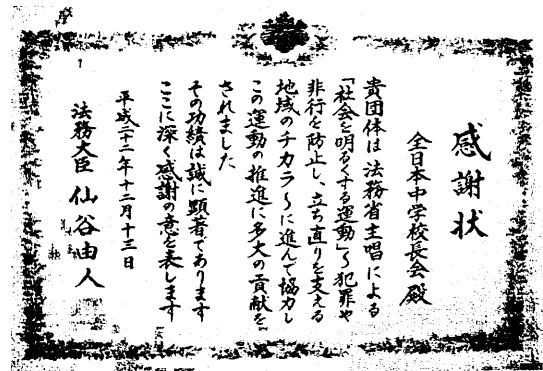 感謝状
全日本中学校長会殿
貴団体は法務省主唱による
「社会を明るくする運動」～犯罪や
非行を防止し、立ち直りを支える
地域のチカラ～に進んで協力し
この運動の推進に多大の貢献を
されました
その功績は誠に顕著であります
ここに深く感謝の意を表します
平成二十二年十二月十三日
法務大臣 仙谷由人